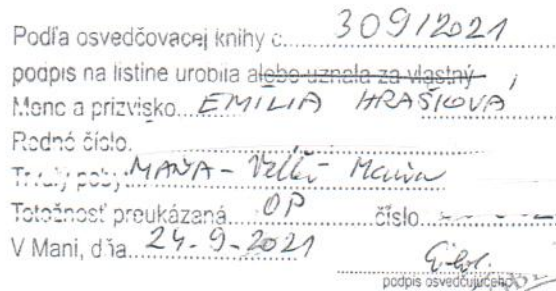 Podľa osvedčovacej knihy č. 309/2021
podpis na listine urobila alebo uznala za vlastný
Meno a priezvisko EMÍLIA HRAŠKOVÁ
Rodné číslo
Trvalý pobyt MAŇA - Veľká Maňa
Totožnosť preukázaná OP číslo
V Mani, dňa 24.9.2021
podpis osvedčujúceho